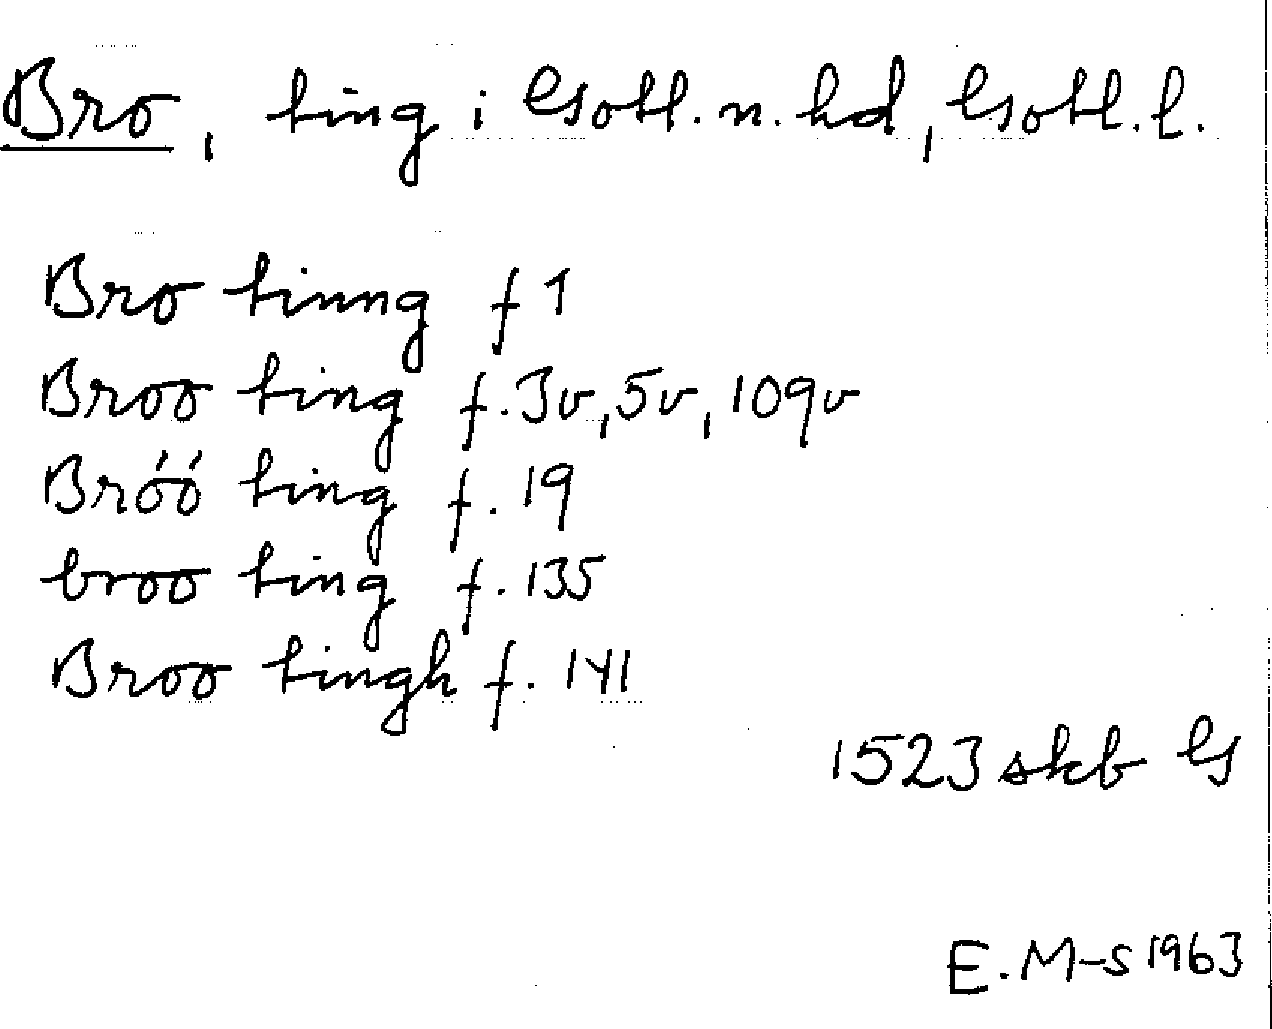 Bro, ting i Gotl. n. hd, Gotl. l.
Bro tinng f 1
Broo ting f. 3v, 5v, 109v
Bróó ting f. 19
broo ting f. 135
Broo tingh f. 141
1523 skb G
E. M-s 1963